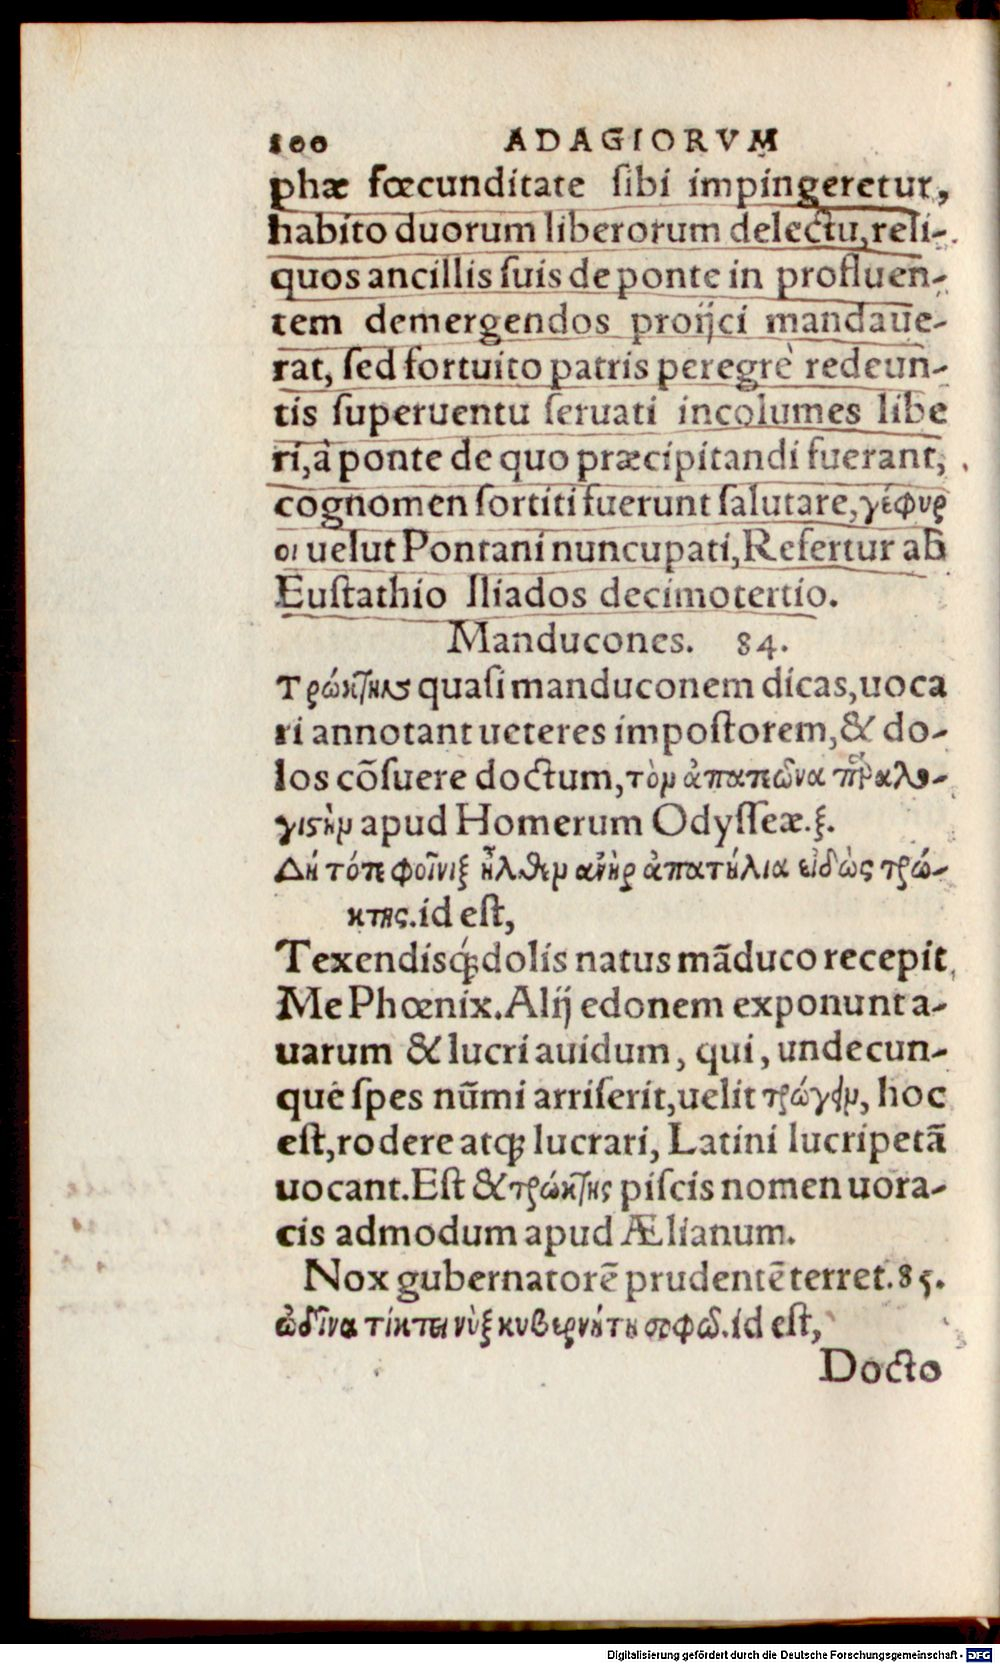 100 ADAGIORVM
phæ fœcunditate ſibi impingeretur,
habito duorum liberorum delectu, reli-
quos ancillis ſuis de ponte in profluen-
tem demergendos proijci mandaue-
rat, ſed fortuito patris peregrè redeun-
tis ſuperuentu ſeruati incolumes libe
ri, à ponte de quo præcipitandi fuerant,
cognomen ſortiti fuerunt ſalutare, γέφυρ
οι uelut Pontani nuncupati, Refertur ab
Euſtathio Iliados decimotertio.
Manducones. 84.
Τρώκτης quaſi manduconem dicas, uoca
ri annotant ueteres impoſtorem, & do-
los cõſuere doctum, τὸν ἀπατεῶνα παραλο-
γιςὴν apud Homerum Odyſſeæ. ξ.
Δὴ τότε φοῖνιξ ἦλθεν ἀνὴρ ἀπατήλια εἰδὼς τρώ-
κτης. id eſt,
Texendisq́; dolis natus mãduco recepit
Me Phœnix. Alij edonem exponunt a-
uarum & lucri auidum, qui, undecun-
que ſpes nũmi arriſerit, uelit τρώγειν, hoc
eſt, rodere atq; lucrari, Latini lucripetã
uocant. Eſt & τρώκτης piſcis nomen uora-
cis admodum apud Ælianum.
Nox gubernatorẽ prudentẽ terret. 85.
ὠδῖνα τίκτει νὺξ κυβερνήτη σοφῶ. id eſt,
Docto
Digitalisierung gefördert durch die Deutsche Forschungsgemeinschaft - DFG